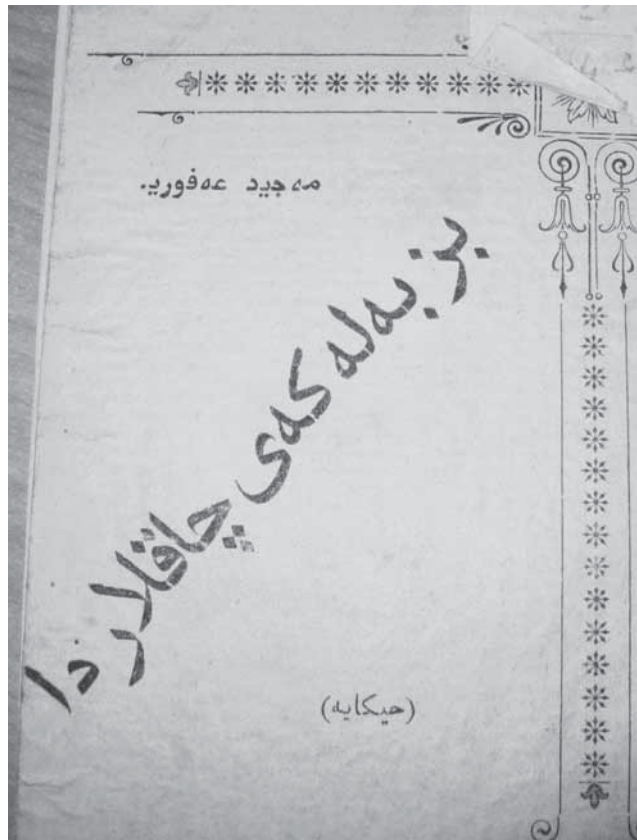 مەجید عەفوریـ
بز بەلەکەی چاقلاردا
(حیکایە)